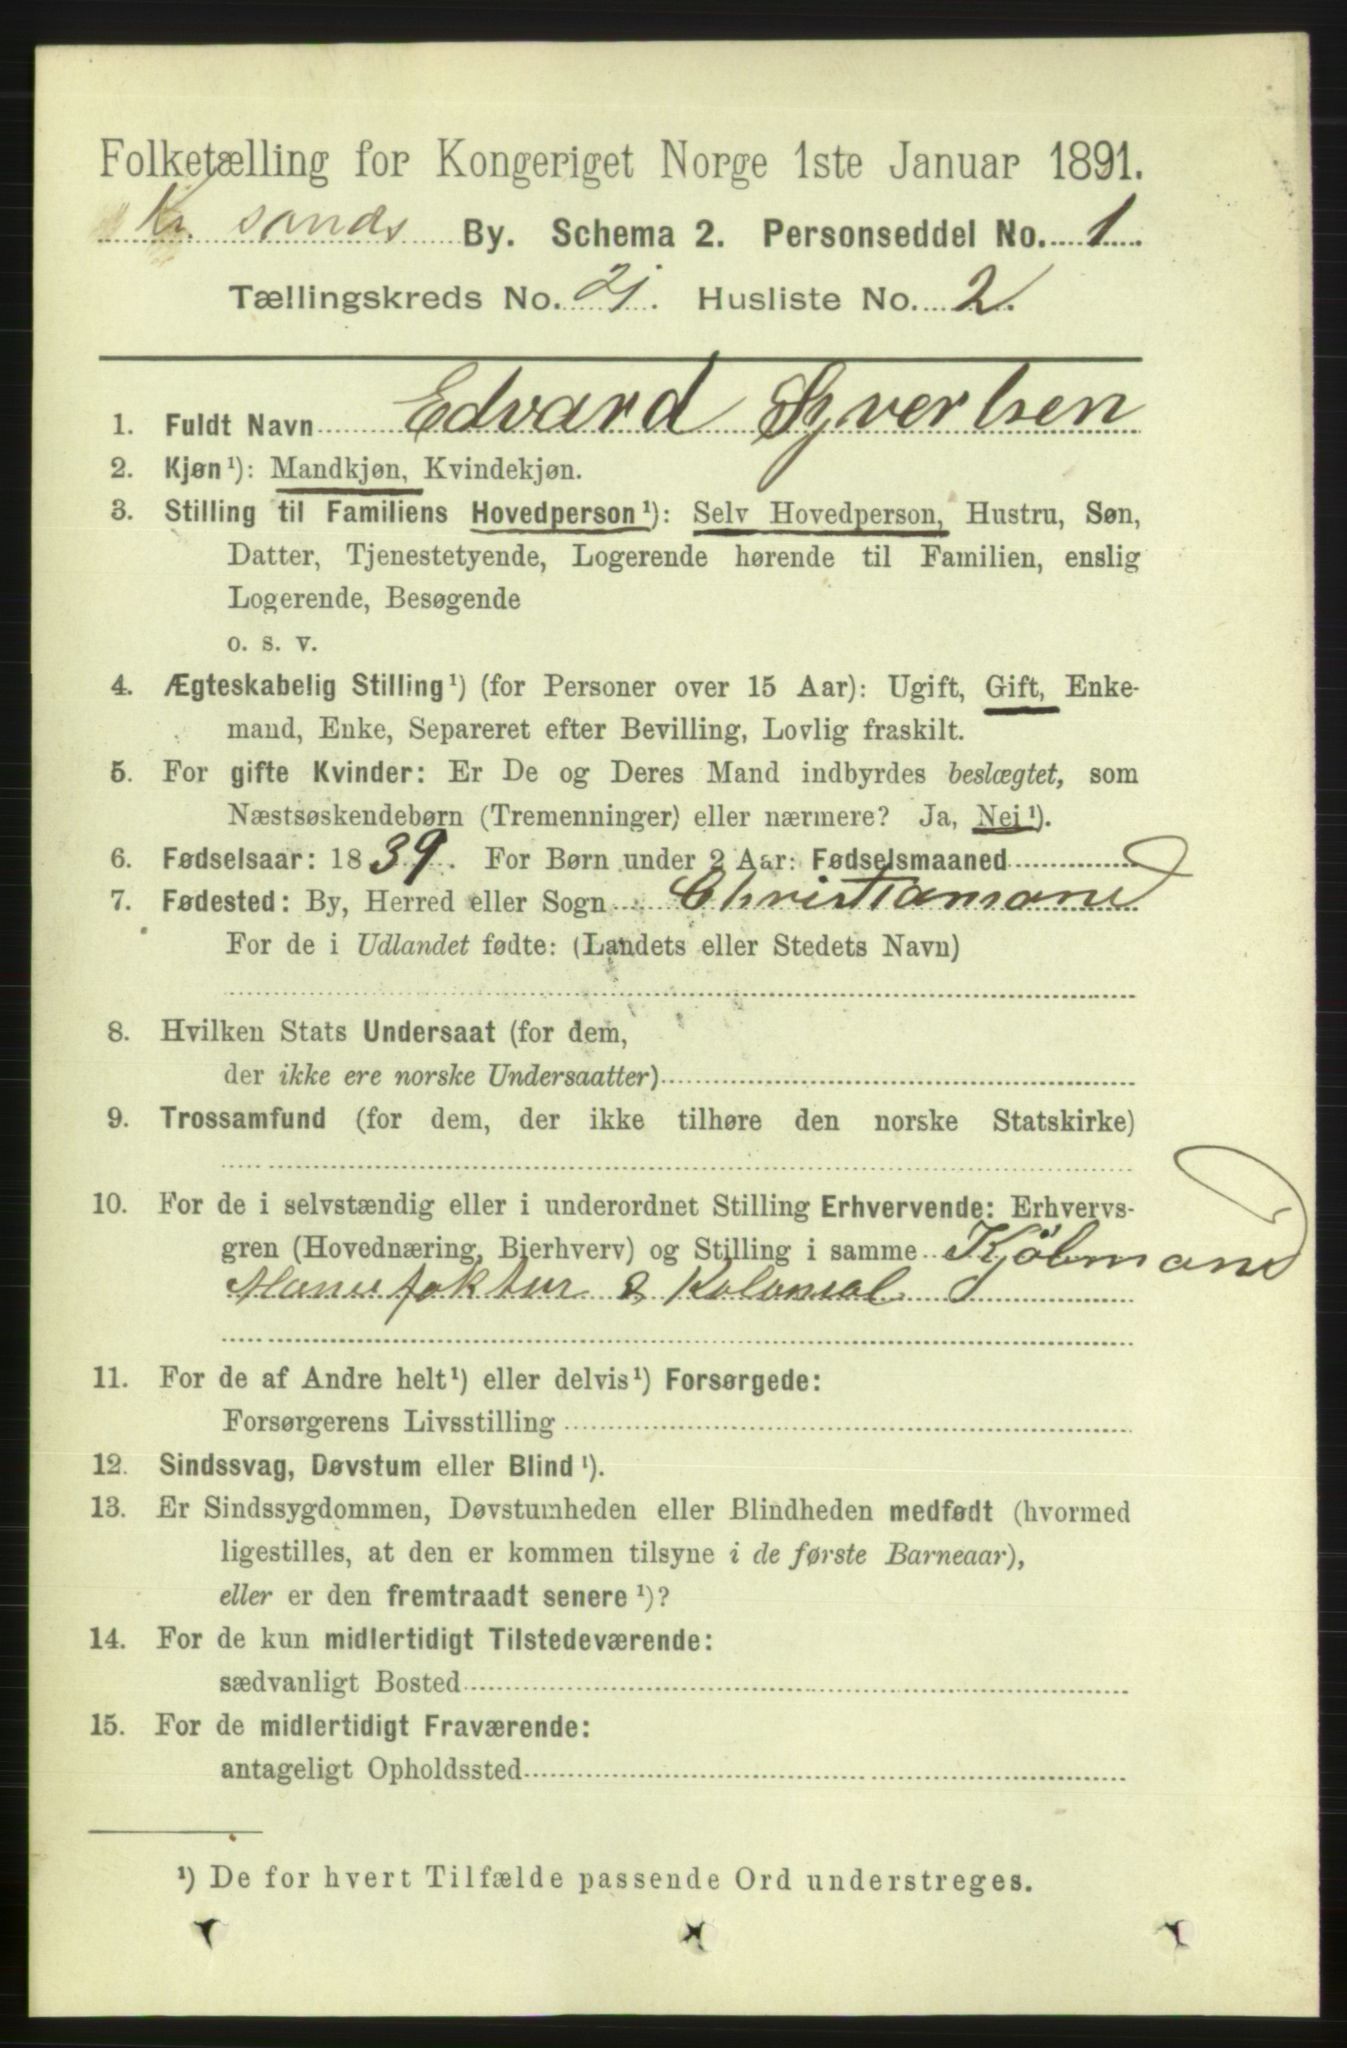 Folketælling for Kongeriget Norge 1ste Januar 1891.
Kr. sands By. Schema 2. Personseddel No. 1.
Tællingskreds No. 21. Husliste No. 2.
1. Fuldt Navn Edvard Syvertsen
2. Kjøn¹): Mandkjøn, Kvindekjøn.
3. Stilling til Familiens Hovedperson¹): Selv Hovedperson, Hustru, Søn,
Datter, Tjenestetyende, Logerende hørende til Familien, enslig
Logerende, Besøgende
o. s. v.
4. Ægteskabelig Stilling¹) (for Personer over 15 Aar): Ugift, Gift, Enke-
mand, Enke, Separeret efter Bevilling, Lovlig fraskilt.
5. For gifte Kvinder: Er De og Deres Mand indbyrdes beslægtet, som
Næstsøskendebørn (Tremenninger) eller nærmere? Ja, Nei¹).
6. Fødselsaar: 1839. For Børn under 2 Aar: Fødselsmaaned
7. Fødested: By, Herred eller Sogn Christiansand
For de i Udlandet fødte: (Landets eller Stedets Navn)
8. Hvilken Stats Undersaat (for dem,
der ikke ere norske Undersaatter)
9. Trossamfund (for dem, der ikke tilhøre den norske Statskirke)
10. For de i selvstændig eller i underordnet Stilling Erhvervende: Erhvervs-
gren (Hovednæring, Bierhverv) og Stilling i samme Kjöbmand
Manufaktur & Kolonial
11. For de af Andre helt¹) eller delvis¹) Forsørgede:
Forsørgerens Livsstilling
12. Sindssvag, Døvstum eller Blind¹).
13. Er Sindssygdommen, Døvstumheden eller Blindheden medfødt (hvormed
ligestilles, at den er kommen tilsyne i de første Barneaar),
eller er den fremtraadt senere¹)?
14. For de kun midlertidigt Tilstedeværende:
sædvanligt Bosted
15. For de midlertidigt Fraværende:
antageligt Opholdssted
¹) De for hvert Tilfælde passende Ord understreges.